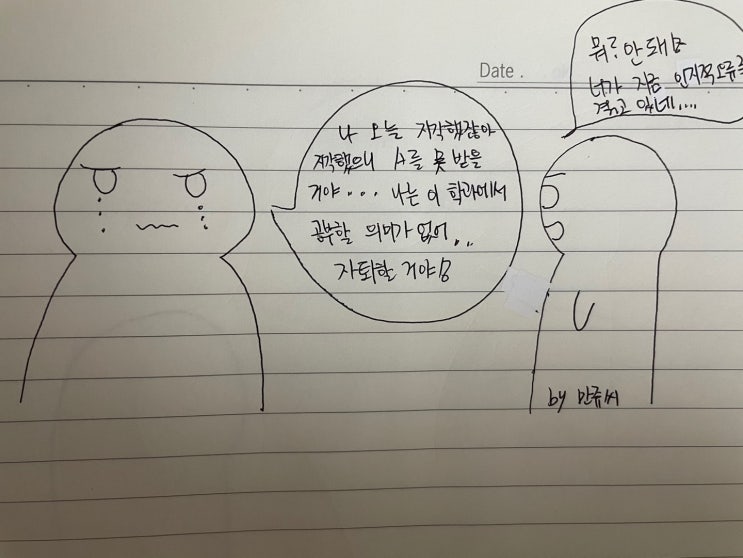 Date .
나 오늘 지각했잖아
지각했으니 A를 못 받을
거야... 나는 이 학과에서
공부할 의미가 없어...
자퇴할 거야!!
뭐? 안돼!!
너가 지금 인지적오류를
겪고 있네....
by 만쥬씨